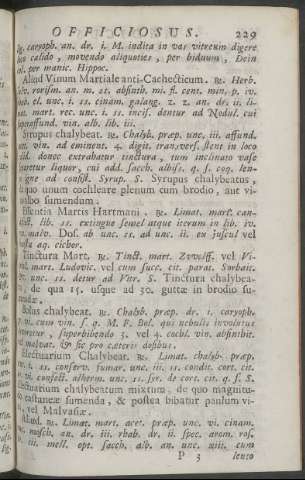 OFFICIOSUS. 229
caryoph. an. dr. i. M. indita in vas vitreum digere
loco calido, movendo aliquoties, per biduum, Dein
per manic. Hippoc.
Aliud Vinum Martiale anti-Cachecticum. ℞. Herb.
rorism. an. m. ss. absinth. mi. fl. cent. min. p. iv.
el. unc. i. ss. cinam. galang. z. z. an. dr. ii. li-
mat. mart. rec. unc. i. ss. incis. dentur ad Nodul. cui
superaffund. vin. alb. lib. iii.
Syrupus chalybeat. ℞. Chalyb. præp. unc. iii. affund.
vin. ad eminent. 4. digit. transvers. stent in loco
donec extrahatur tinctura, tum inclinato vase
liquor, cui add. sacch. albiss. q. s. coq. len-
igne ad consist. Syrup. S. Syrupus chalybeatus,
quo unum cochleare plenum cum brodio, aut vi-
no albo sumendum.
Essentia Martis Hartmani. ℞. Limat. mart. can-
lib. ss. extingue semel atque iterum in lib. iv.
malv. Dos. ab unc. ss. ad unc. ii. ex jusculo vel
aq. cicher.
Tinctura Mart. ℞. Tinct. mart. Zwulff. vel Vi-
mart. Ludovic. vel cum succ. cit. parat.
unc. ss. detur ad Vitr. S. Tinctura chalybea-
de qua 15. usque ad 30. guttæ in brodio su-
Bolus chalybeat. ℞. Chalyb. præp. dr. i. caryoph.
cum vin. f. q. M. F. Bol. qui nebulis involutus
superbibendo 3. vel 4. cochl. vin. absinthit.
& sic pro cæteris dosibus.
Electuarium Chalybeat. ℞. Limat. chalyb. præp.
i. ss. conserv. fumar. unc. iii. ss. condit. cort. cit.
confect. alherm. unc. ss. syr. de cort. cit. q. s. S.
Electuarium chalybeatum mixtum, de quo magnitu-
castaneæ sumenda, & postea bibatur paulum vi-
ni, vel Malvasiæ.
Aliud. ℞. Limat. mart. acet. præp. unc. vi. cinam.
mosch. an. dr. iii. rhab. dr. ii. spec. arom. ros.
iii. mell. opt. sacch. alb. an. unc. viii. cum
P 3 lento